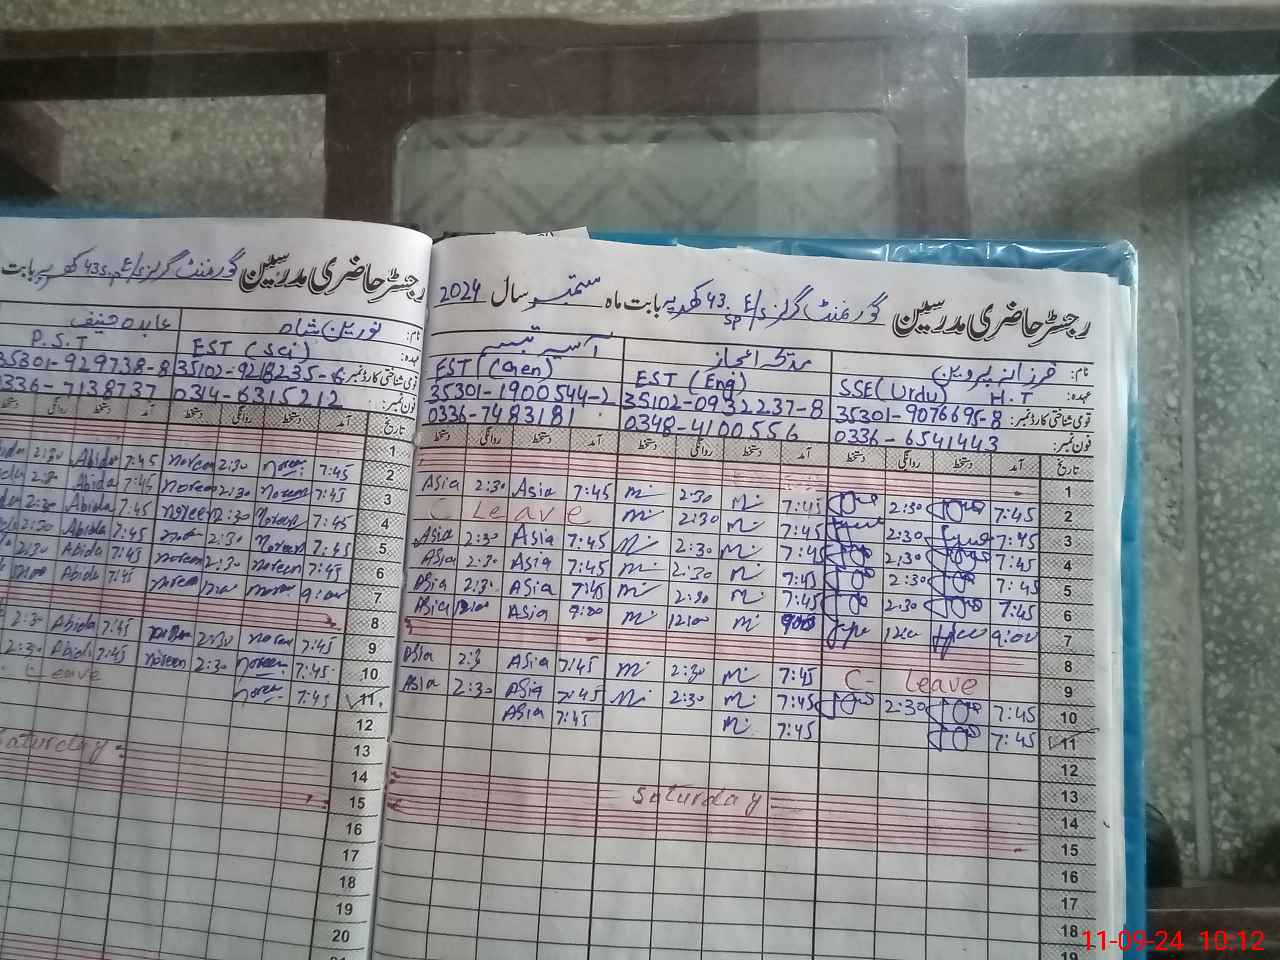 رجسٹر حاضری مدرسین گورنمنٹ گرلز E/S 43 SP کھرپہ بابت ماہ ستمبر سال 2024
نام: فرزانہ پروین
عہدہ: SSE (Urdu) H.T
قومی شناختی کارڈ نمبر: 35301-9076695-8
فون نمبر: 0336-6541443
EST (Eng)
35102-0932237-8
0348-4100556
آسیہ تبسم
EST (Gen)
35301-1900544-2
0336-7483181
تاریخ آمد دستخط روانگی دستخط آمد دستخط روانگی دستخط آمد دستخط روانگی دستخط
1
2 7:45 2:30 7:45 2:30 7:45 Asia 2:30 Asia
3 7:45 2:30 7:45 2:30 C Leave
4 7:45 2:30 7:45 2:30 7:45 Asia 2:30 Asia
5 7:45 2:30 7:45 2:30 7:45 Asia 2:30 Asia
6 7:45 2:30 7:45 2:30 7:45 Asia 2:30 Asia
7 9:00 12:00 9:00 12:00 9:00 Asia 12:00 Asia
8
9 C- Leave 7:45 2:30 7:45 Asia 2:3 Asia
10 7:45 2:30 7:45 2:30 7:45 Asia 2:30 Asia
11 7:45 7:45 7:45 Asia
12
13
14 Saturday
15
16
17
18
19
رجسٹر حاضری مدرسین گورنمنٹ گرلز E/S 43 SP کھرپہ بابت
نام: نورین شاہ
عہدہ: EST (Sci)
قومی شناختی کارڈ نمبر: 35102-9218235-6
فون نمبر: 0314-6315212
عابدہ حنیف
P.S.T
35301-929738-8
0336-7138737
تاریخ آمد دستخط روانگی دستخط آمد دستخط روانگی
1
2 7:45 Noreen 2:30 Noreen 7:45 Abida 2:30 Abida
3 7:45 Noreen 2:30 Noreen 7:45 Abida 2:30
4 7:45 Noreen 2:30 Noreen 7:45 Abida 2:30
5 7:45 Noreen 2:30 7:45 Abida 2:30
6 7:45 Noreen 2:30 Noreen 7:45 Abida 2:30
7 9:00 Noreen 7:45 Abida
8
9 7:45 Noreen 2:30 7:45 Abida 2:30
10 7:45 Noreen 2:30 Noreen 7:45 Abida 2:30
11 7:45 Noreen C Leave
12
13
14 Saturday
15
16
17
18
19
20
11-09-24 10:12